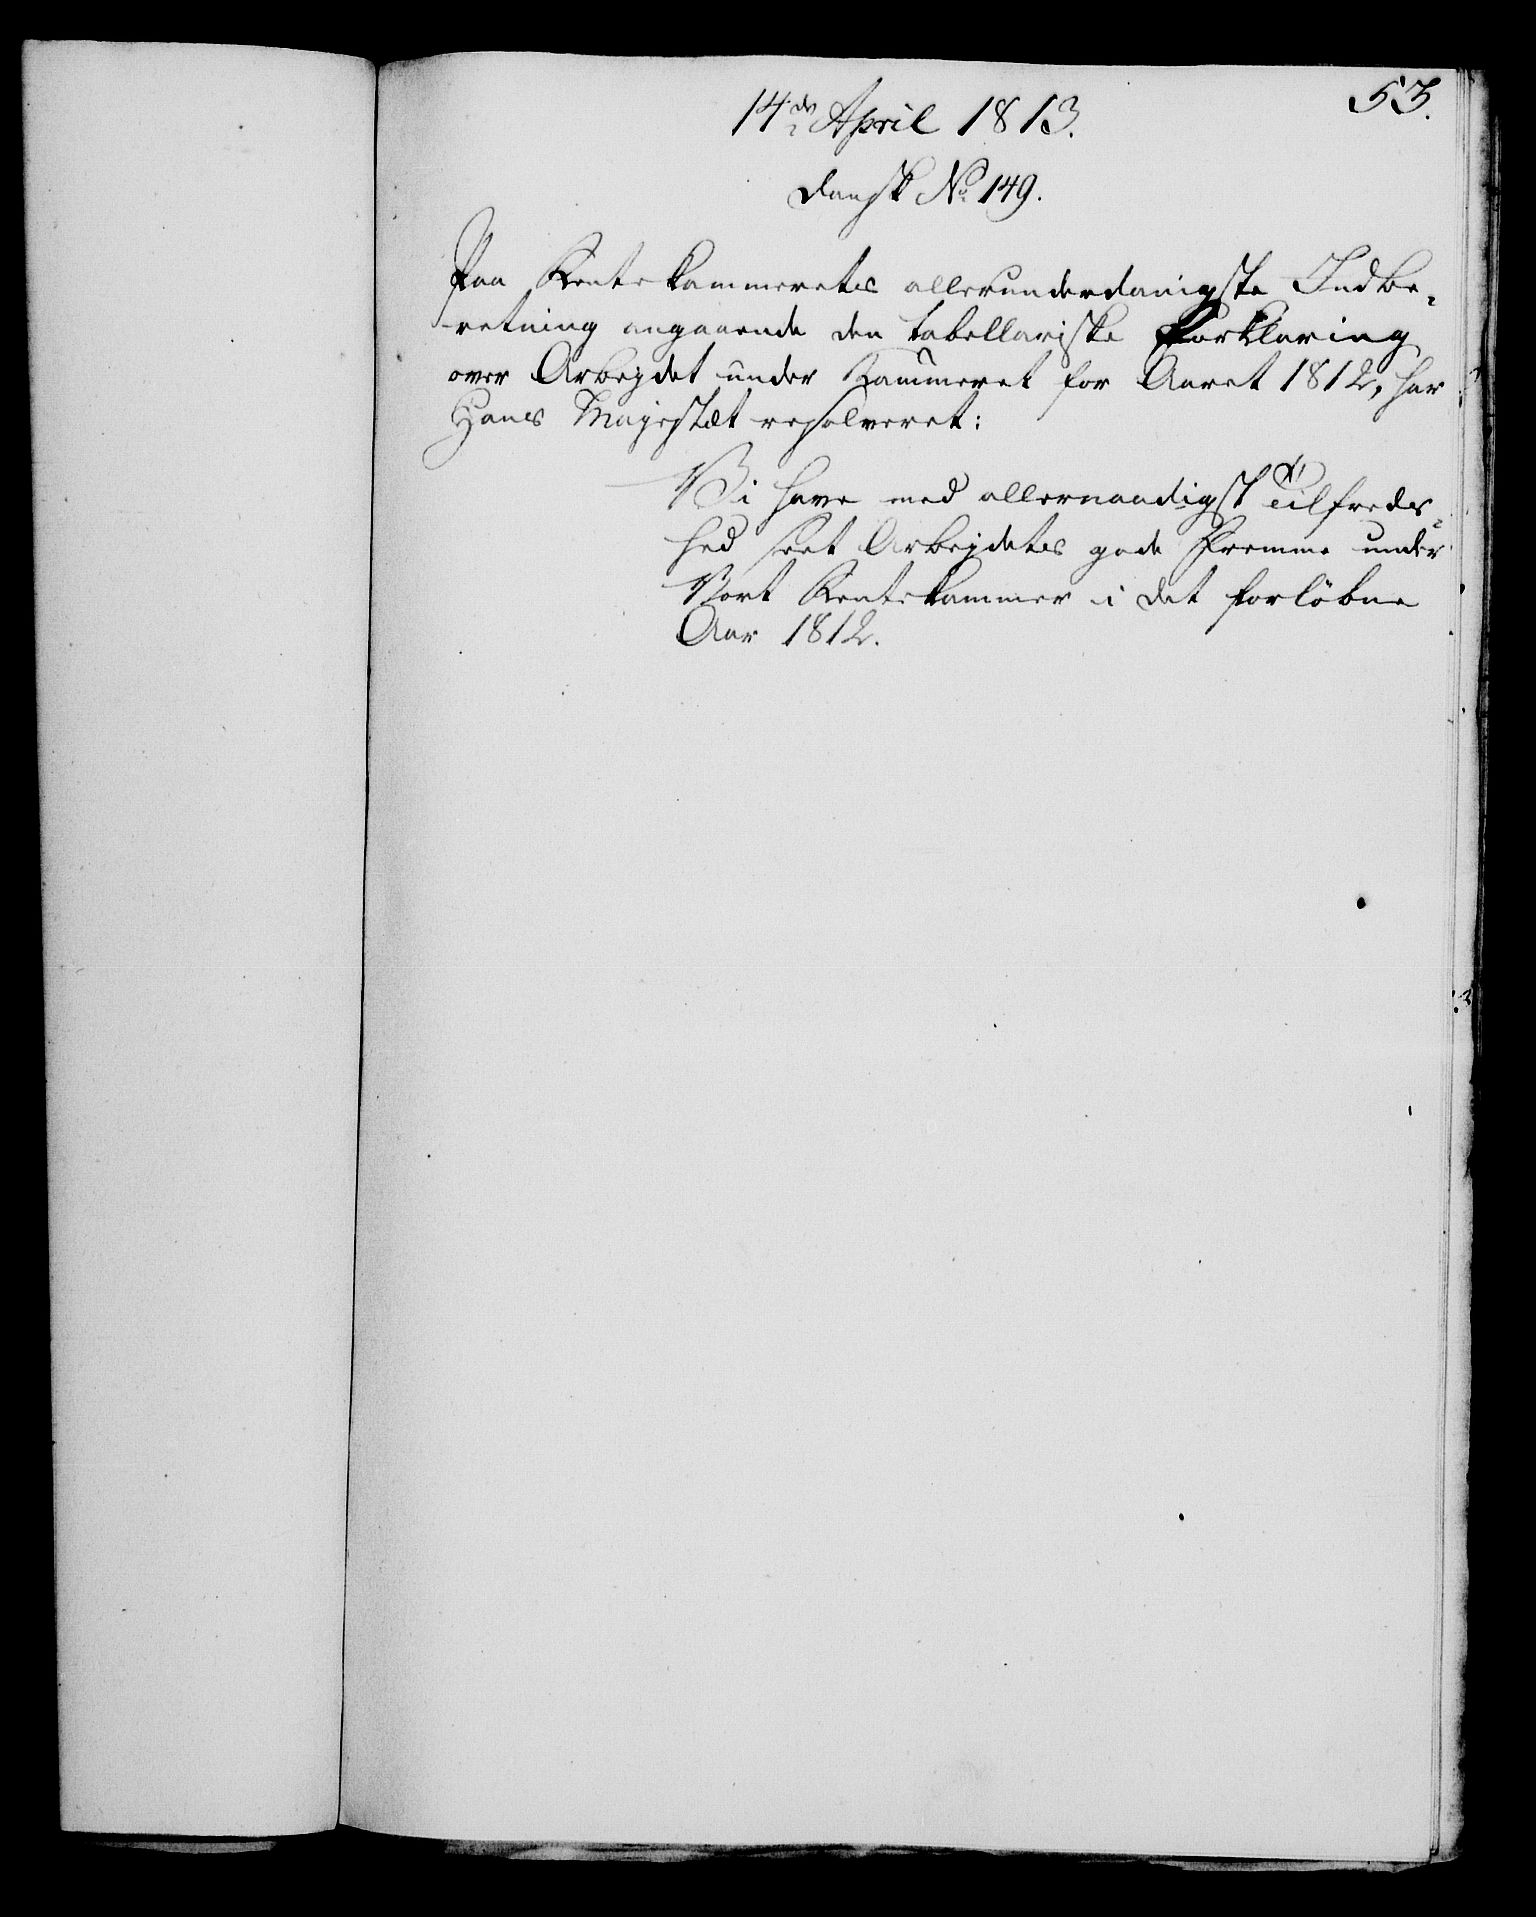 53.
14de April 1813.
Dansk No. 149.
Paa Rentekammerets allerunderdanigste Indbe-
retning angaaende den tabellariske Forklaring
over Arbejdet under Kammeret for Aaret 1812, har
Hans Majestæt resolveret:
Vi have med allernaadigst Tilfreds-
hed seet Arbejdets gode Fremme under
Vort Rentekammer i det forløbne
Aar 1812.